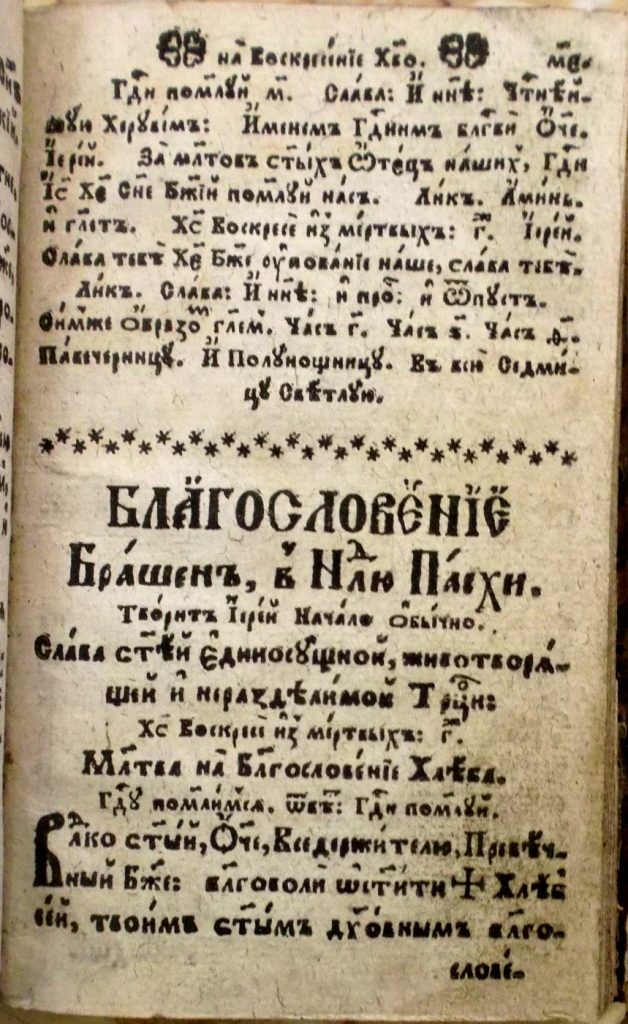 на Воскресе́нїе Хв҃о. м҃е.
Гдⷭ҇и поми́лꙋй м҃. Сла́ва: И҆ ны́нѣ: Чтⷭ҇нѣ́й-
шꙋю Херꙋві̑мъ: И҆́менемъ Гдⷭ҇нимъ бл҃гⷭ҇вѝ Ѻ҆́ч҃е.
І҆ере́й. За мл҃твъ ст҃ы́хъ Ѻ҆те́цъ на́шихъ, Гдⷭ҇и
І҆и҃с Хрⷭ҇те Сн҃е Бж҃їй поми́лꙋй на́съ. Ликъ. А҆ми́нь.
и҆ гл҃етъ. Хрⷭ҇то́съ Воскре́се и҆з̾ ме́ртвыхъ: г҃. І҆ере́й.
Сла́ва тебѣ̀ Хрⷭ҇тѐ Бж҃е ᲂу҆пова́нїе на́ше, сла́ва тебѣ̀.
Ликъ. Сла́ва: И҆ ны́нѣ: и҆ про́ч: и҆ Ѿпꙋстъ.
Си́мже о́бразоⷨ гл҃емъ. Ча́съ г҃. Ча́съ ѕ҃. Ча́съ ѳ҃.
Павече́рницꙋ. И҆ Полꙋно́щницꙋ. Въ всю̀ Седми́-
цꙋ Свѣ́тлꙋю.
БЛАГОСЛОВЕ́НЇЕ
Бра́шенъ, в̾ Нлⷣю Па́схи.
Твори́тъ І҆ере́й Нача́ло Ѻ҆бы́чно.
Сла́ва ст҃ѣ́й Є҆диносꙋ́щной, животворѧ́-
щей и҆ нераздѣли́мой Трⷪ҇цы:
Хрⷭ҇то́съ Воскре́се и҆з̾ ме́ртвыхъ: г҃.
Мл҃тва на Бл҃гослове́нїе Хлѣ́ба.
Гдⷭ҇ꙋ помо́лимсѧ. ѿвѣ́: Гдⷭ҇и поми́лꙋй.
Влⷣко ст҃ы́й, Ѻ҆́ч҃е, Вседержи́телю, Превѣ́ч-
ный Бж҃е: бл҃говолѝ ѡ҆ст҃и́ти ✠ Хлѣ́бъ
се́й, твои́мъ ст҃ы́мъ дꙋхо́внымъ бл҃го-
слове́-